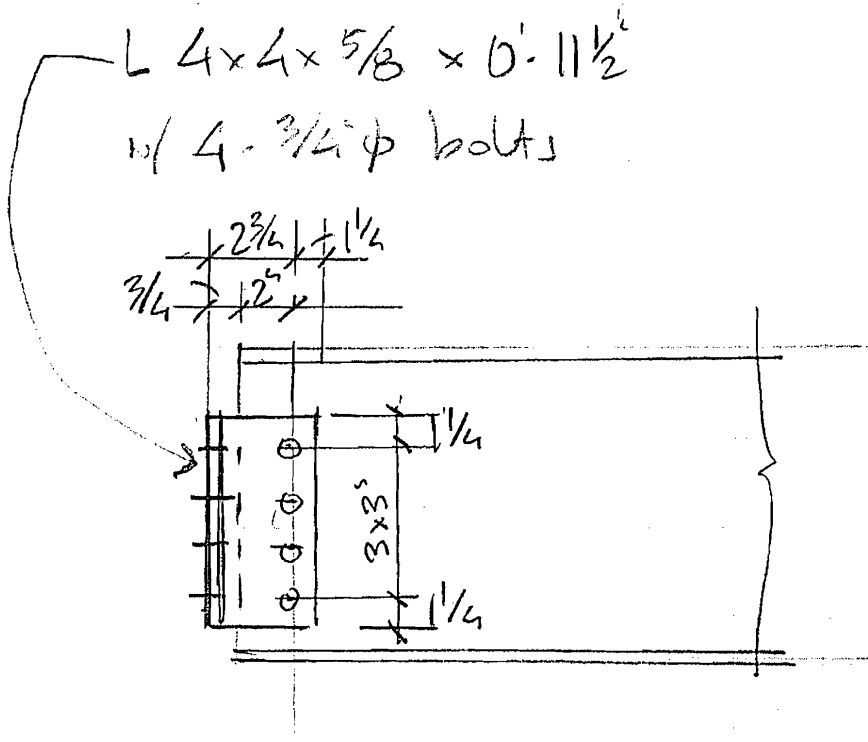 L 4x4x 5/8 x 0'-11 1/2"
w/ 4-3/4"φ bolts
2 3/4 1 1/4
3/4 2"
1 1/4
3x3"
1 1/4